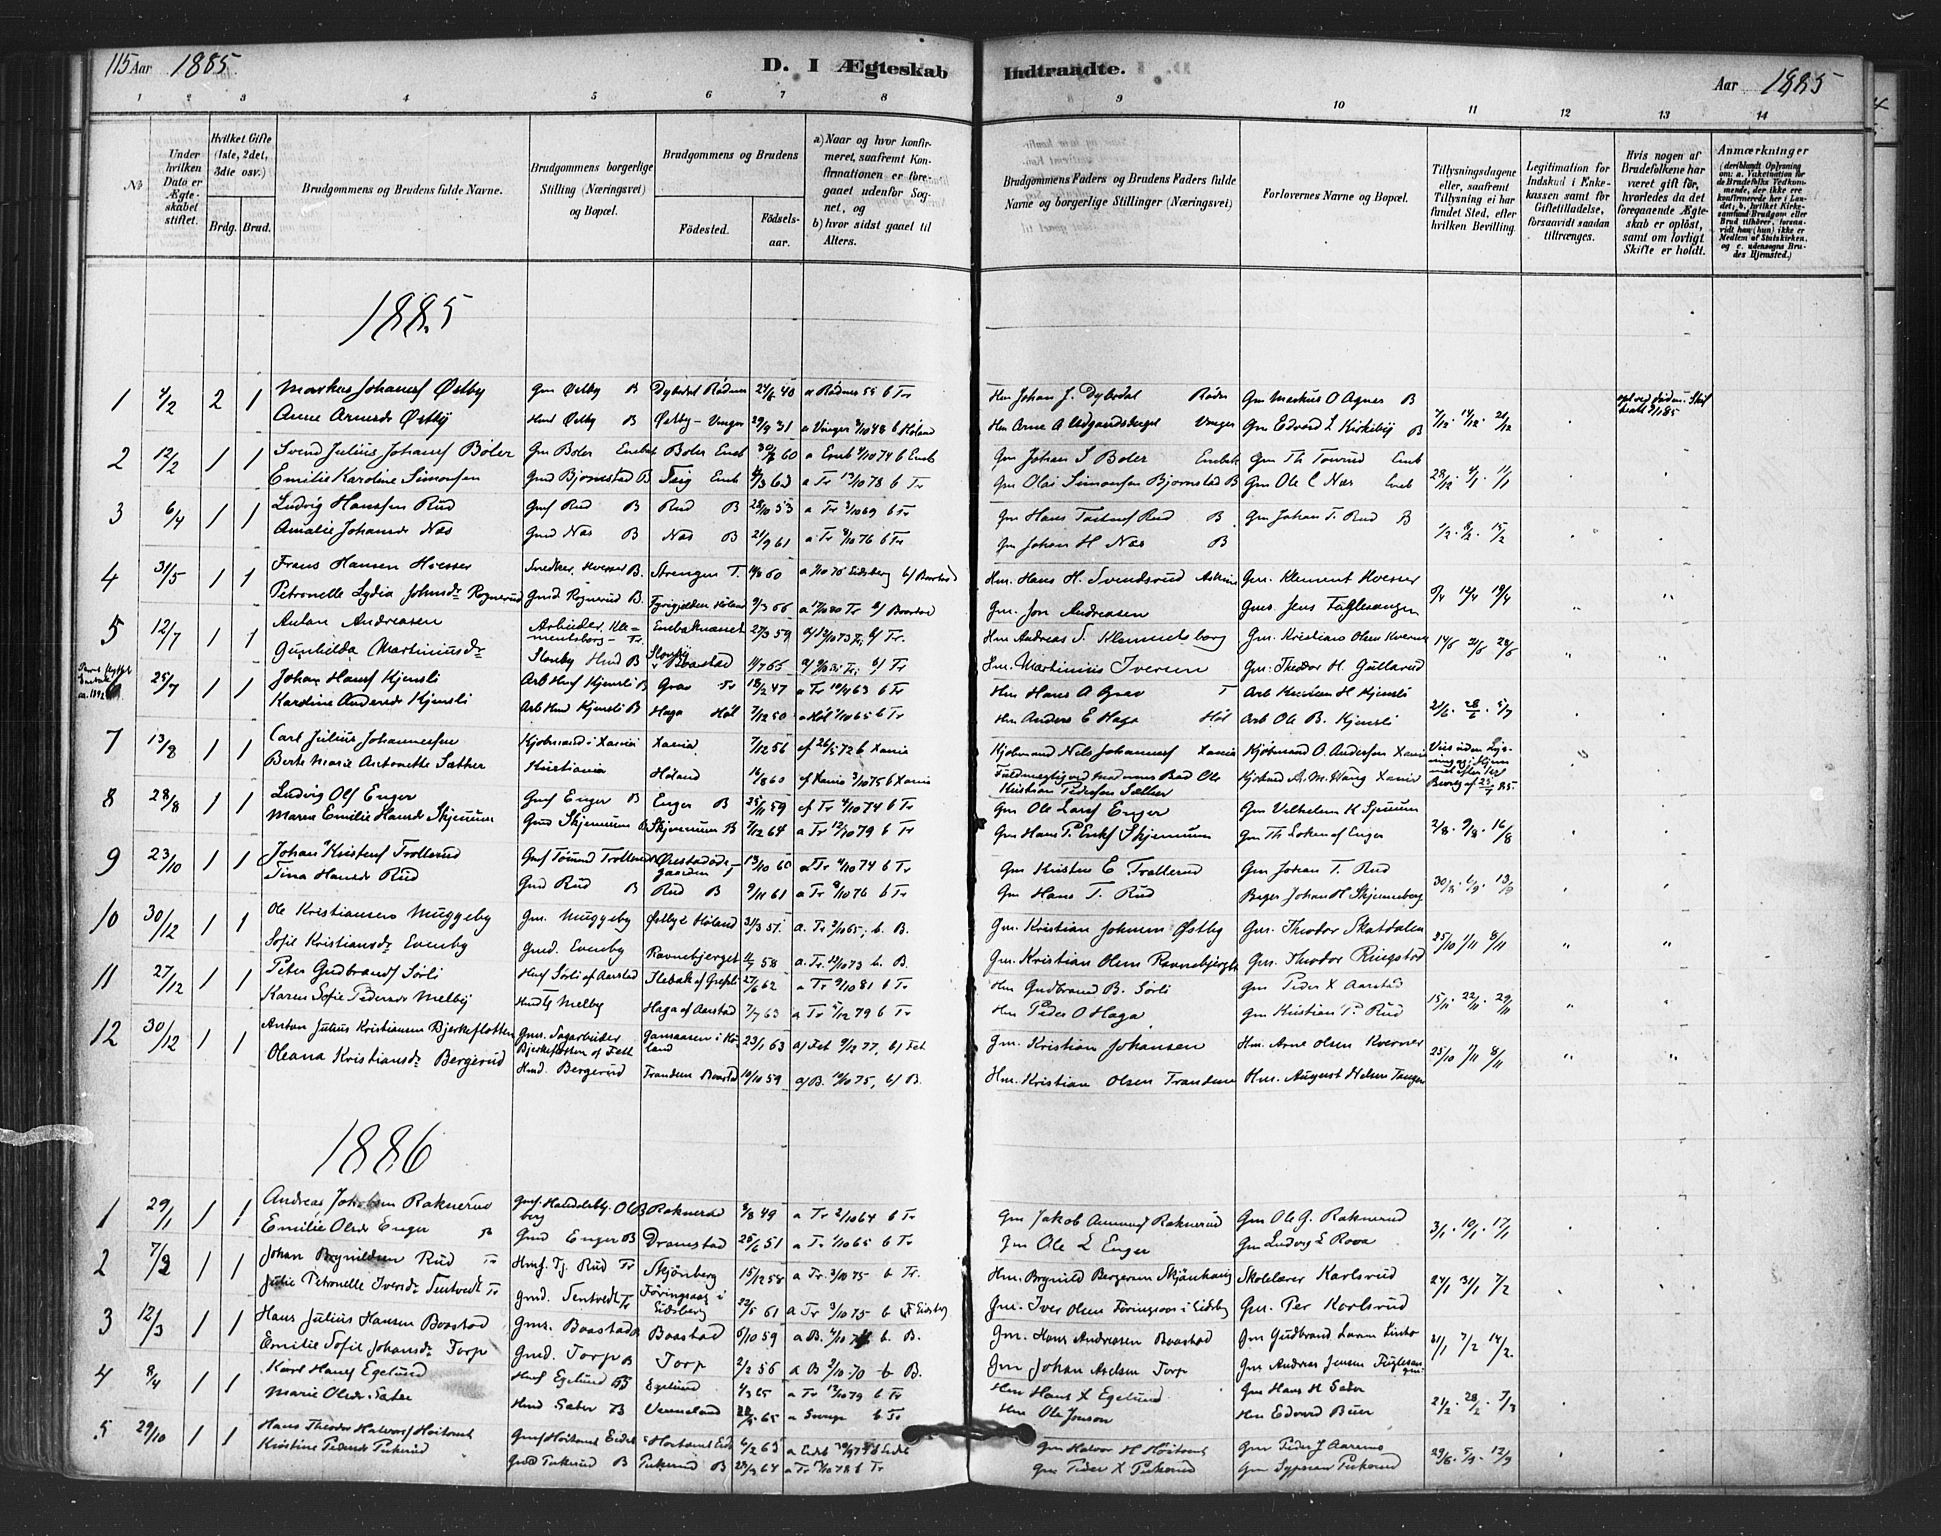 115 Aar 1885.
D. I Ægteskab Indtraadte.
Aar 1885
1 2 3 4 5 6 7 8 9 10 11 12 13 14
No
Under hvilken Dato er Ægteskabet stiftet.
Hvilket Gifte (1ste, 2det, 3die osv.)
Brdg. Brud.
Brudgommens og Brudens fulde Navne.
Brudgommens borgerlige Stilling (Næringsvei) og Bopæl.
Brudgommens og Brudens
Fødested.
Fødselsaar.
a) Naar og hvor konfirmeret, saafremt Konfirmationen er foregaaet udenfor Sognet, og
b) hvor sidst gaaet til Alters.
Brudgommens Faders og Brudens Faders fulde Navne og borgerlige Stillinger (Næringsvei)
Forlovernes Navne og Bopæl.
Tillysningsdagene eller, saafremt Tillysning ei har fundet Sted, efter hvilken Bevilling.
Legitimation for Indskud i Enkekassen samt for Giftetilladelse, forsaavidt saadan tiltrænges.
Hvis nogen af Brudefolkene har været gift før, hvorledes da det foregaaende Ægteskab er opløst, samt om lovligt Skifte er holdt.
Anmærkninger
(deriblandt Oplysning om: a. Vakcination for de Brudefolks Vedkommende, der ikke ere konfirmerede her i Landet; b. hvilket Kirkesamfund Brudgom eller Brud tilhører, forsaavidt han (hun) ikke er Medlem af Statskirken, og c. udensogns Brudes Hjemsted.)
1885
1 4/2 2 1 Markus Johanesf Østby Gm Østby B Dybedal Rødnes 24/5 40 a Rødnes 55 b Tr Hm Johan J. Dybedal Rødn Gm Markus O Agnes B
Anne Arnesdr Østby Hmd Østby B Østby - Vinger 29/9 31 a Vinger 8/10 48 b Høland Hm Arne A Vinger Gm Edvard L Kirkeby B 7/12 14/12 21/12
2 12/2 1 1 Svend Julius Johanesf Böler Gm Boler Enebak Boler Eneb 30/8 60 a Eneb 4/10 74 b Eneb Gm Johan S Boler Enebak Gm Th Tonrud Eneb
Emilie Karoline Simonsen Gmd Bjørnstad B Teig Eneb 4/3 63 a Tr 13/10 78 b Tr Gm Olai Simonsen Bjørnstad B Gm Ole C Næs Eneb 28/12 4/1 11/1
3 6/4 1 1 Ludvig Hanssen Rud Gmf Rud B Rud B 28/10 53 a Tr 3/10 69 b Tr Gm Hans Rud B Gm Johan T. Rud B
Amalie Johansdr Næs Gmd Næs B Næs B 21/9 61 a Tr 8/10 76 b Tr Gm Johan H Næs B 1/2 8/2 15/2
4 31/5 1 1 Frans Hansen Hvesser Snedker, Hvesser B. Strengen T. 14/8 60 a 1/10 75 Eidsberg b/ Baastad Hm. Hans H. Svendsrud Askim Gm. Klement Hvesser
Petronelle Lydia Johnsdr Rognerud Gmd Rognerud B. Høland 9/3 66 a 17/10 80 Tr b/ Baastad Gm. Jon Andreasen Gms. Jens Fuglesangen 5/4 12/4 19/4
5 12/7 1 1 Anton Andreasen Arbeider, Klemmentsborg - Tr. Enebaknæset 27/3 59 a/ 12/10 73 Tr, b/ Tr. Hm Andreas S. Klemmetsborg Gm. Kristians Olsen Kverner
Gunhilda Martiniusdr Slonby Hmd B Baastad 1/7 65 b/ Tr Sm. Martinius Iversen Gm. Theodor H. Gullerud 14/6 21/6 28/6
25/7 1 1 Johan Hansf Kjensli Arb Hmf Kjensli B Grav Tr 18/2 47 a Tr 10/4 63 b Tr Hm Hans A Grav T Arb H Kjensli
Karoline Andersdr Kjensli Arb Hmd Kjensli B Haga Høl 7/12 50 a Høl 1/10 65 b Tr Hm Anders E Haga Høl Arb Ole B. Kjensli 21/6 28/6 5/7
7 13/8 1 1 Carl Julius Johannessen Kjøbmand i Xania Xania 7/12 56 af 26/5 72 b Xania Kjøbmand Nils Johannesf Xania Kjøbmand O. Andersen Xania
Berte Marie Antonette Sæther Kristiania Høland 16/8 60 af Xania 3/10 75 b Xania Fuldmægtig Ole Kristian Pedersen Sæther Kjøbmd A. M. Wang Xania
8 28/8 1 1 Ludvig Olsf Enger Gmf Enger B Enger B 25/11 59 af Tr 4/10 74 b Tr Gm Ole Larsf Enger Gm Vilhelm K Spinum
Maren Emilie Hansdr Skjennum Gmd Skjennum B Skjennum B 7/12 64 a Tr 12/10 79 b Tr Gm Hans P. Eriksf Skjennum Gm Th Enger 2/8 9/8 16/8
9 23/10 1 1 Johan Kristenf Trollerud 13/10 60 a Tr 4/10 74 b Tr Gm Kristen E Trollerud Gm Johan T. Rud
Tina Hansdr Rud Gmd Rud B Rud B 9/11 61 a Tr 8/10 76 b Tr Gm Hans T. Rud Johan H Skjønneberg 30/8 6/9 13/9
10 30/12 1 1 Ole Kristiansen Muggeby Gm. Muggeby Østby i Høland 31/3 51. a. Tr. 3/10 65, b. B. Gm. Kristian Johnsen Østby Gm. Theodor Skatdalen
Sofie Kristiansdr Evenby Gmd. Evenby Ravnebjerget 11/7 58 a. Tr. 12/10 73 b. B. Gm. Kristian Olsen Ravnebjerget Gm. Theodor Ringstad 25/10 1/11 8/11
11 27/12 1 1 Peter Gudbrandsf Sørli Hmf Sørli af Aarstad 27/6 62 a Tr 9/10 81 b Tr Hm Gudbrand B. Sørli Gm Peder X Aarstad
Karen Sofie Pedersdr Melby Melby Haga af Aarstad 7/7 63 a Tr 5/12 79 b Tr Hm Peder O Haga Gm Kristian P. Rud 15/11 22/11 29/11
12 30/12 1 1 Anton Julius Kristiansen Bjerkeflotten Gms. Sagarbeider Bjerkeflotten af Fet Gansaasen i Høland 23/1 63 a/ Fet 9/12 77, b/ Fet Gm. Kristian Johansen Hm. Arne Olsen Kverner
Oleana Kristiansdr Bergerud Hmd. Bergerud Trandem Baastad 10/10 59 a/ B. 10/10 75, b/ B. Hm. Kristian Olsen Trandem Hm. August Nelsen Tanger 25/10 7/11 8/11
1886
1 29/1 1 1 Andreas Raknerud Raknerud 9/8 49 a Tr 2/10 64 b Tr Gm Jakob Raknerud Gm Ole G. Raknerud
Emilie Olsdr Enger Gmd Enger B Dramstad 26/6 51 a Tr 1/10 65 b Tr Gm Ole L Enger Gm Ludvig L Rova 3/1 10/1 17/1
2 7/2 1 1 Johan Brynildsen Rud Tr Hmf. Tj. Rud Tr Skjønberg 15/12 58 a Tr. 3/10 75 b Tr. Hm. Brynild Bergersen Skjønhaug Skolelærer Karlsrud
Julie Petronelle Iversdr Tentvedt Tr Gmd. Tentvedt Tr Føringsaas i Eidsberg 22/5 61 a Tr 3/10 75 b Gm. Iver Olsen Føringsaas i Eidsbg Gm. Per Karlsrud 24/1 31/1 7/2
3 12/3 1 1 Hans Julius Hansen Baastad Gms. Baastad Baastad 6/10 59 a B. b. B. Gm. Hans Andreasen Baastad Gm Gudbrand Larsen Linto
Emilie Sofie Johansdr Torp Gmd. Torp B Torp 2/2 56 a B 2/10 70 b B. Gm Johan Axelsen Torp Gm Andreas Jensen Fuglesangen 31/1 7/2 14/2
4 8/4 1 1 Karl Hansf Egelund Hmf Egelund B Egelund 4/3 65 a Tr 12/10 79 b Tr Hm Hans X Egelund Gm Hans H Sæter
Marie Olsdr Sæter Hmd Sæter B Vermeland 65 a Sverige b Tr Hm Ole Jonson Hm Edvard Buer 21/2 28/2 7/3
5 29/10 1 1 Hans Theodor Halvorsf Høitomt Gmf Høitomt Eidsb Høitomt Eids 6/2 63 b Eidsb Gm Halvor H Høitomt Gm Peder J Aaremo
Kristine Pedersdr Pukerud Gmd Pukerud B Pukerud B 23/2 64 a Tr 13/10 78 b Tr Gm Peder X Pukerud Gm Syversen Pukerud 29/8 5/9 12/9